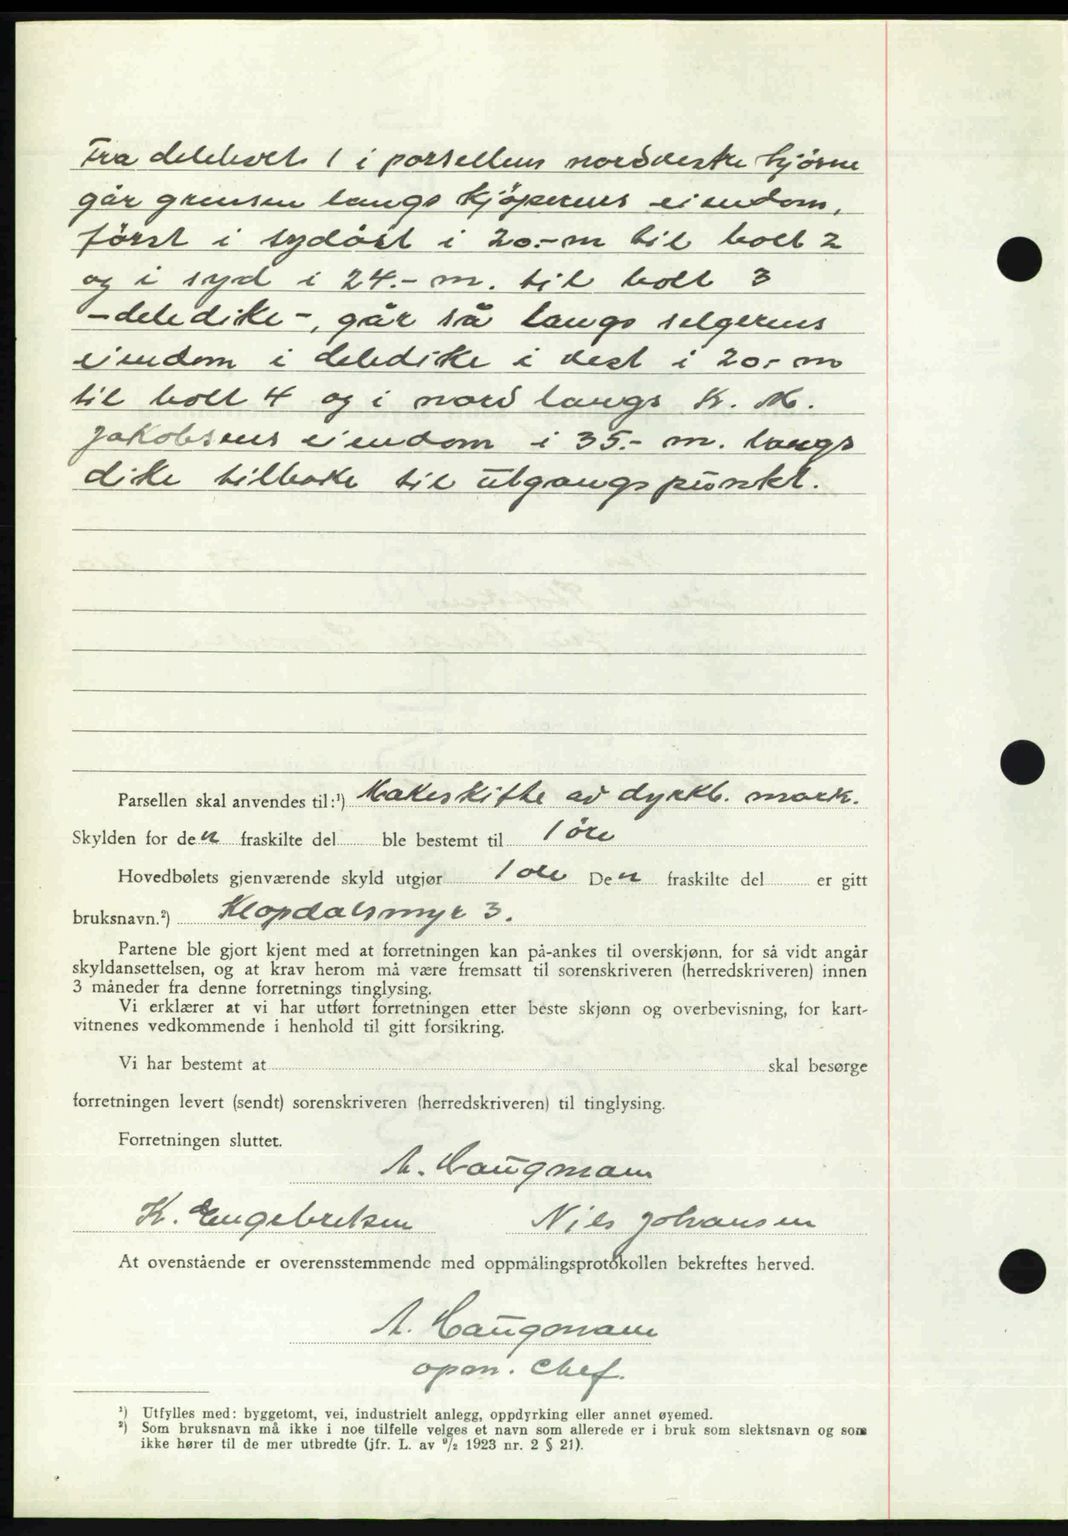 Fra delebolt 1 i parsellens nordvestre hjørne
går grensen langs kjöperens eiendom,
først i sydöst i 20.- m til bolt 2
og i syd i 24.- m. til bolt 3
- deledike -, går så langs selgerens
eiendom i deledike i vest i 20.- m
til bolt 4 og i nord langs K. M.
Jakobsens eiendom i 35.- m. langs
dike tilbake til utgangspunkt.
Parsellen skal anvendes til:¹) Makeskifte av dyrkb. mark.
Skylden for den fraskilte del ble bestemt til 1 öre
Hovedbølets gjenværende skyld utgjør 1 öre Den fraskilte del er gitt
bruksnavn.²) Klopdalsmyr 3.
Partene ble gjort kjent med at forretningen kan på-ankes til overskjønn, for så vidt angår
skyldansettelsen, og at krav herom må være fremsatt til sorenskriveren (herredskriveren) innen
3 måneder fra denne forretnings tinglysing.
Vi erklærer at vi har utført forretningen etter beste skjønn og overbevisning, for kart-
vitnenes vedkommende i henhold til gitt forsikring.
Vi har bestemt at skal besørge
forretningen levert (sendt) sorenskriveren (herredskriveren) til tinglysing.
Forretningen sluttet.
A. Haugmann
K. Engebretsen Nils Johansen
At ovenstående er overensstemmende med oppmålingsprotokollen bekreftes herved.
A. Haugmann
opm. chef.
¹) Utfylles med: byggetomt, vei, industrielt anlegg, oppdyrking eller annet øyemed.
²) Som bruksnavn må ikke i noe tilfelle velges et navn som allerede er i bruk som slektsnavn og som
ikke hører til de mer utbredte (jfr. L. av ⁹/₂ 1923 nr. 2 § 21).